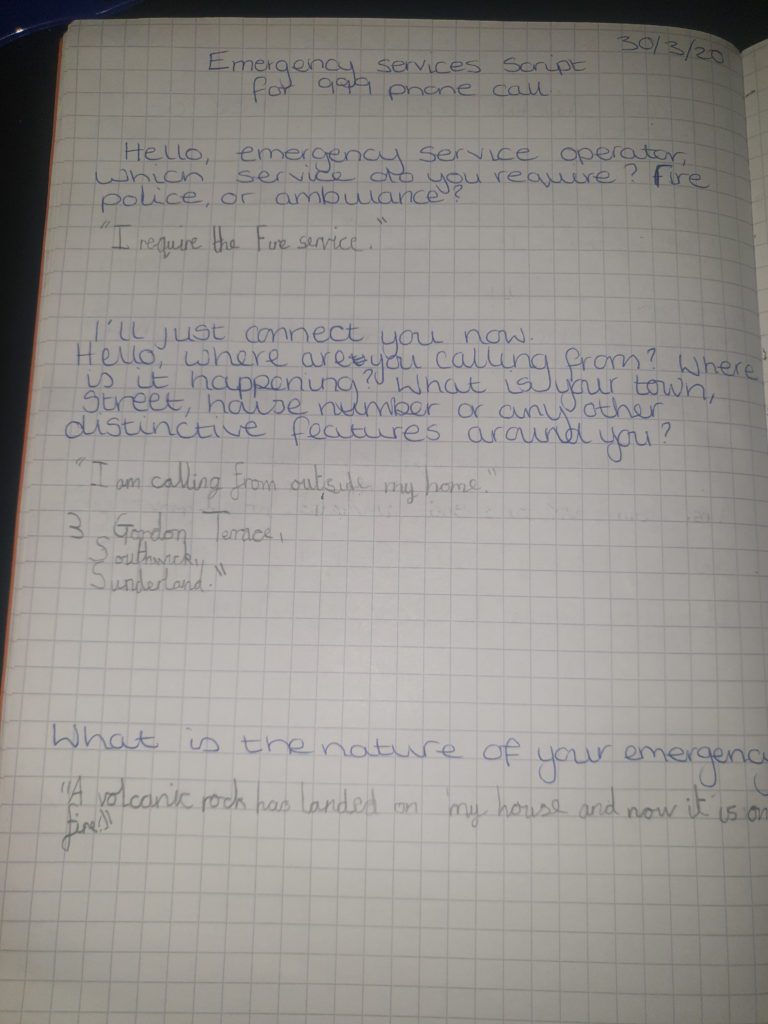 30/3/20
Emergency services script
for 999 phone call
Hello, emergency service operator,
which service do you require? Fire
police, or ambulance?
"I require the Fire service."
I'll just connect you now.
Hello, where are you calling from? Where
is it happening? What is your town,
street, house number or any other
distinctive features around you?
"I am calling from outside my home."
3 Gordon Terrace,
Southwick,
Sunderland."
What is the nature of your emergency
"A volcanic rock has landed on my house and now it is on
fire!"